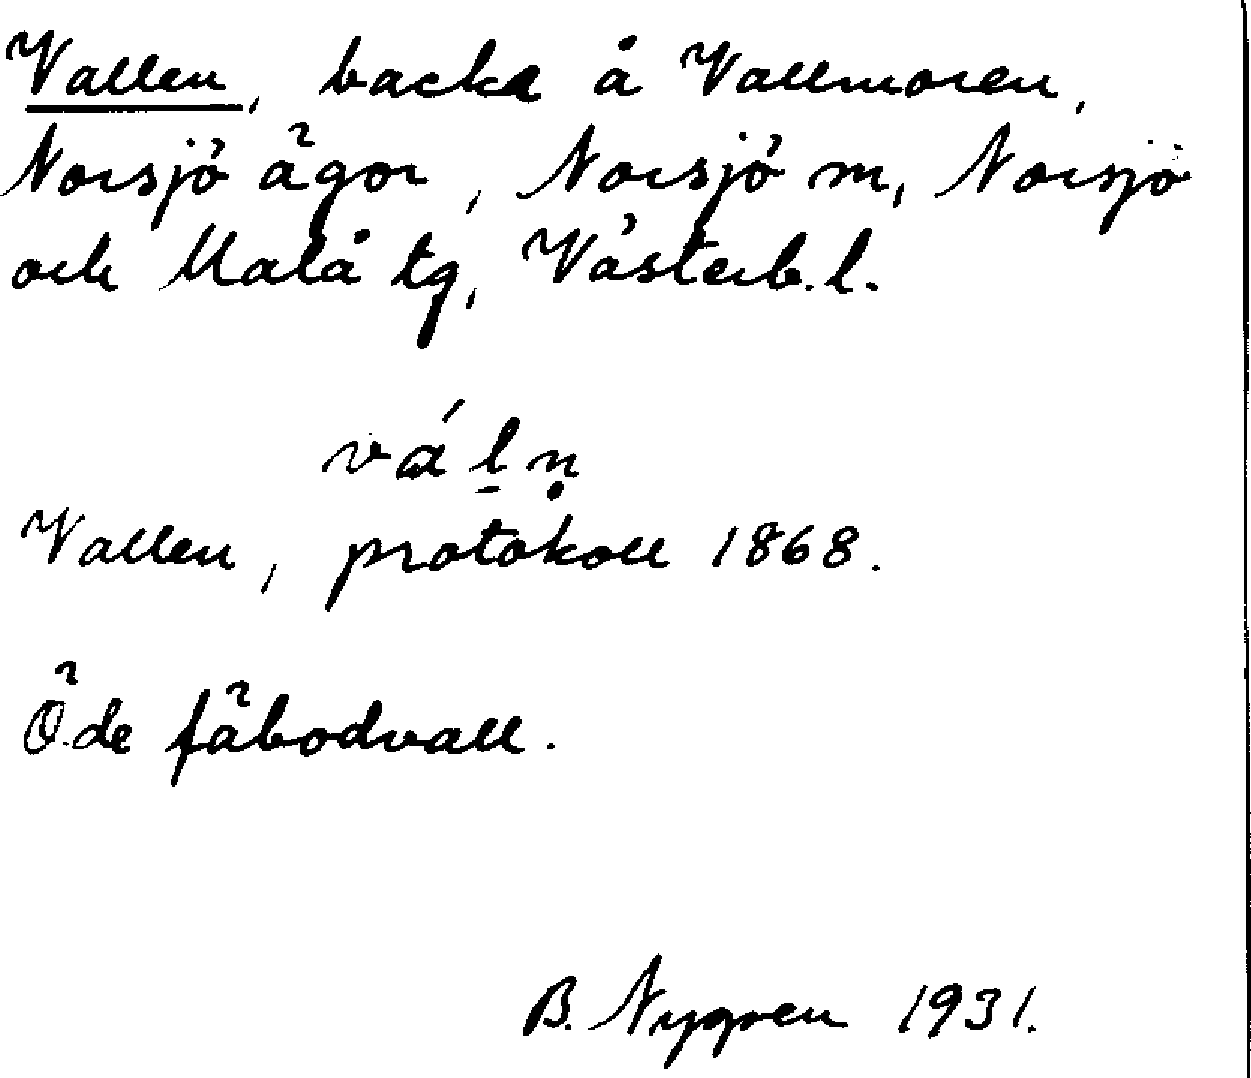 Vallen, backe å Vallmoren,
Norsjö ägor, Norsjö sn, Norsjö
och Malå tg, Västerb. l.
vál̲ṇ
Vallen, protokoll 1868.
Öde fäbodvall.
B. Nygren 1931.